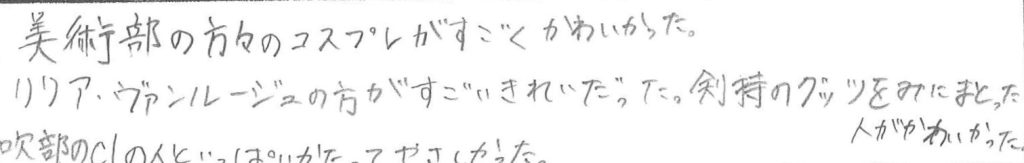 美術部の方々のコスプレがすごくかわいかった。
リリア・ヴァンルージュの方がすごいきれいだった。剣持のグッツをみにまとった
人がかわいかった。
吹部のclの人といっぱいかたってやさしかった。